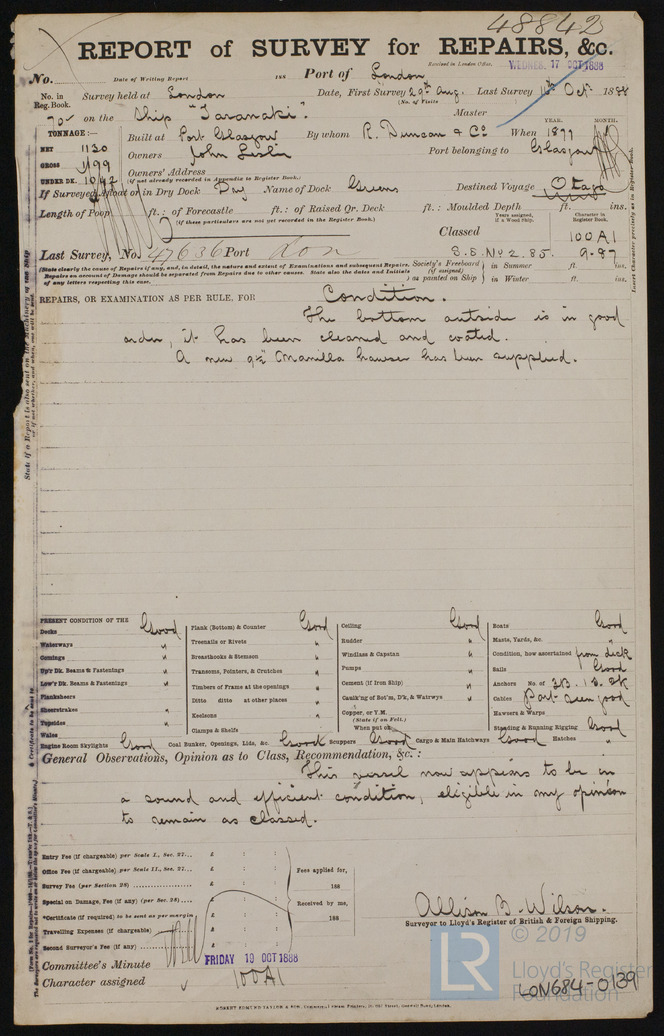 48842
REPORT of SURVEY for REPAIRS, &c.
Received in London Office, WEDNES. 17 OCT 1888
No. Date of Writing Report 188 Port of London
No. in Reg. Book. Survey held at London Date, First Survey 29th Aug. Last Survey 16th Oct. 1888
(No. of Visits
70 on the Ship "Taranaki". Master
TONNAGE:— YEAR. MONTH.
NET 1130 Built at Port Glasgow By whom R. Duncan & Co When 1877
GROSS 1199 Owners John Leslie Port belonging to Glasgow
UNDER DK. 1042 Owners' Address
(if not already recorded in Appendix to Register Book.)
If Surveyed Afloat or in Dry Dock Dry Name of Dock Greens Destined Voyage Otago
Length of Poop ft.: of Forecastle ft.: of Raised Qr. Deck ft.: Moulded Depth ft. ins.
(if these particulars are not yet recorded in the Register Book.)
Years assigned, if a Wood Ship. Character in Register Book.
Classed 100A1
Last Survey, No. 47636 Port Lon S.S. No 2. 85. 9.87
(State clearly the cause of Repairs if any, and, in detail, the nature and extent of Examinations and subsequent Repairs. Repairs on account of Damage should be separated from Repairs due to other causes. State also the dates and Initials of any letters respecting this case.
Society's Freeboard (if assigned) as painted on Ship in Summer ft. ins.
in Winter ft. ins.
REPAIRS, OR EXAMINATION AS PER RULE, FOR Condition.
The bottom outside is in good
order, it has been cleaned and coated.
A new 9½ Manilla hawser has been supplied.
PRESENT CONDITION OF THE
Decks Good
Waterways "
Comings "
Up'r Dk. Beams & Fastenings "
Low'r Dk. Beams & Fastenings "
Planksheers
Sheerstrakes "
Topsides "
Wales
Plank (Bottom) & Counter Good
Treenails or Rivets "
Breasthooks & Stemson "
Transoms, Pointers, & Crutches "
Timbers of Frame at the openings "
Ditto ditto at other places "
Keelsons "
Clamps & Shelfs
Ceiling Good
Rudder "
Windlass & Capstan "
Pumps "
Cement (if from Ship) "
Caulk'ng of Bot'm, D'k, & Watrwys "
Copper, or Y.M. (State if on Felt.)
When put on
Boats Good
Masts, Yards, &c. "
Condition, how ascertained from deck
Sails Good
Anchors No. of 3B. 1S. 2K
Cables Part seen good
Hawsers & Warps
Standing & Running Rigging Good
Engine Room Skylights Good Coal Bunker, Openings, Lids, &c. Good Scuppers Good Cargo & Main Hatchways Good Hatches "
General Observations, Opinion as to Class, Recommendation, &c.:
This vessel now appears to be in
a sound and efficient condition, eligible in my opinion
to remain as classed.
Entry Fee (if chargeable) per Scale I., Sec. 27... £ : :
Office Fee (if chargeable) per Scale II., Sec. 27... £ : :
Survey Fee (per Section 28) £ : :
Special on Damage, Fee (if any) (per Sec. 28) £ : :
*Certificate (if required) to be sent as per margin £ : :
Travelling Expenses (if chargeable) £ : :
Second Surveyor's Fee (if any) £ : :
Fees applied for,
188
Received by me,
188
Allison B. Wilson.
Surveyor to Lloyd's Register of British & Foreign Shipping.
Committee's Minute FRIDAY 19 OCT 1888
Character assigned 100A1
© 2019
LR
Lloyd's Register
Foundation
LON684-0139